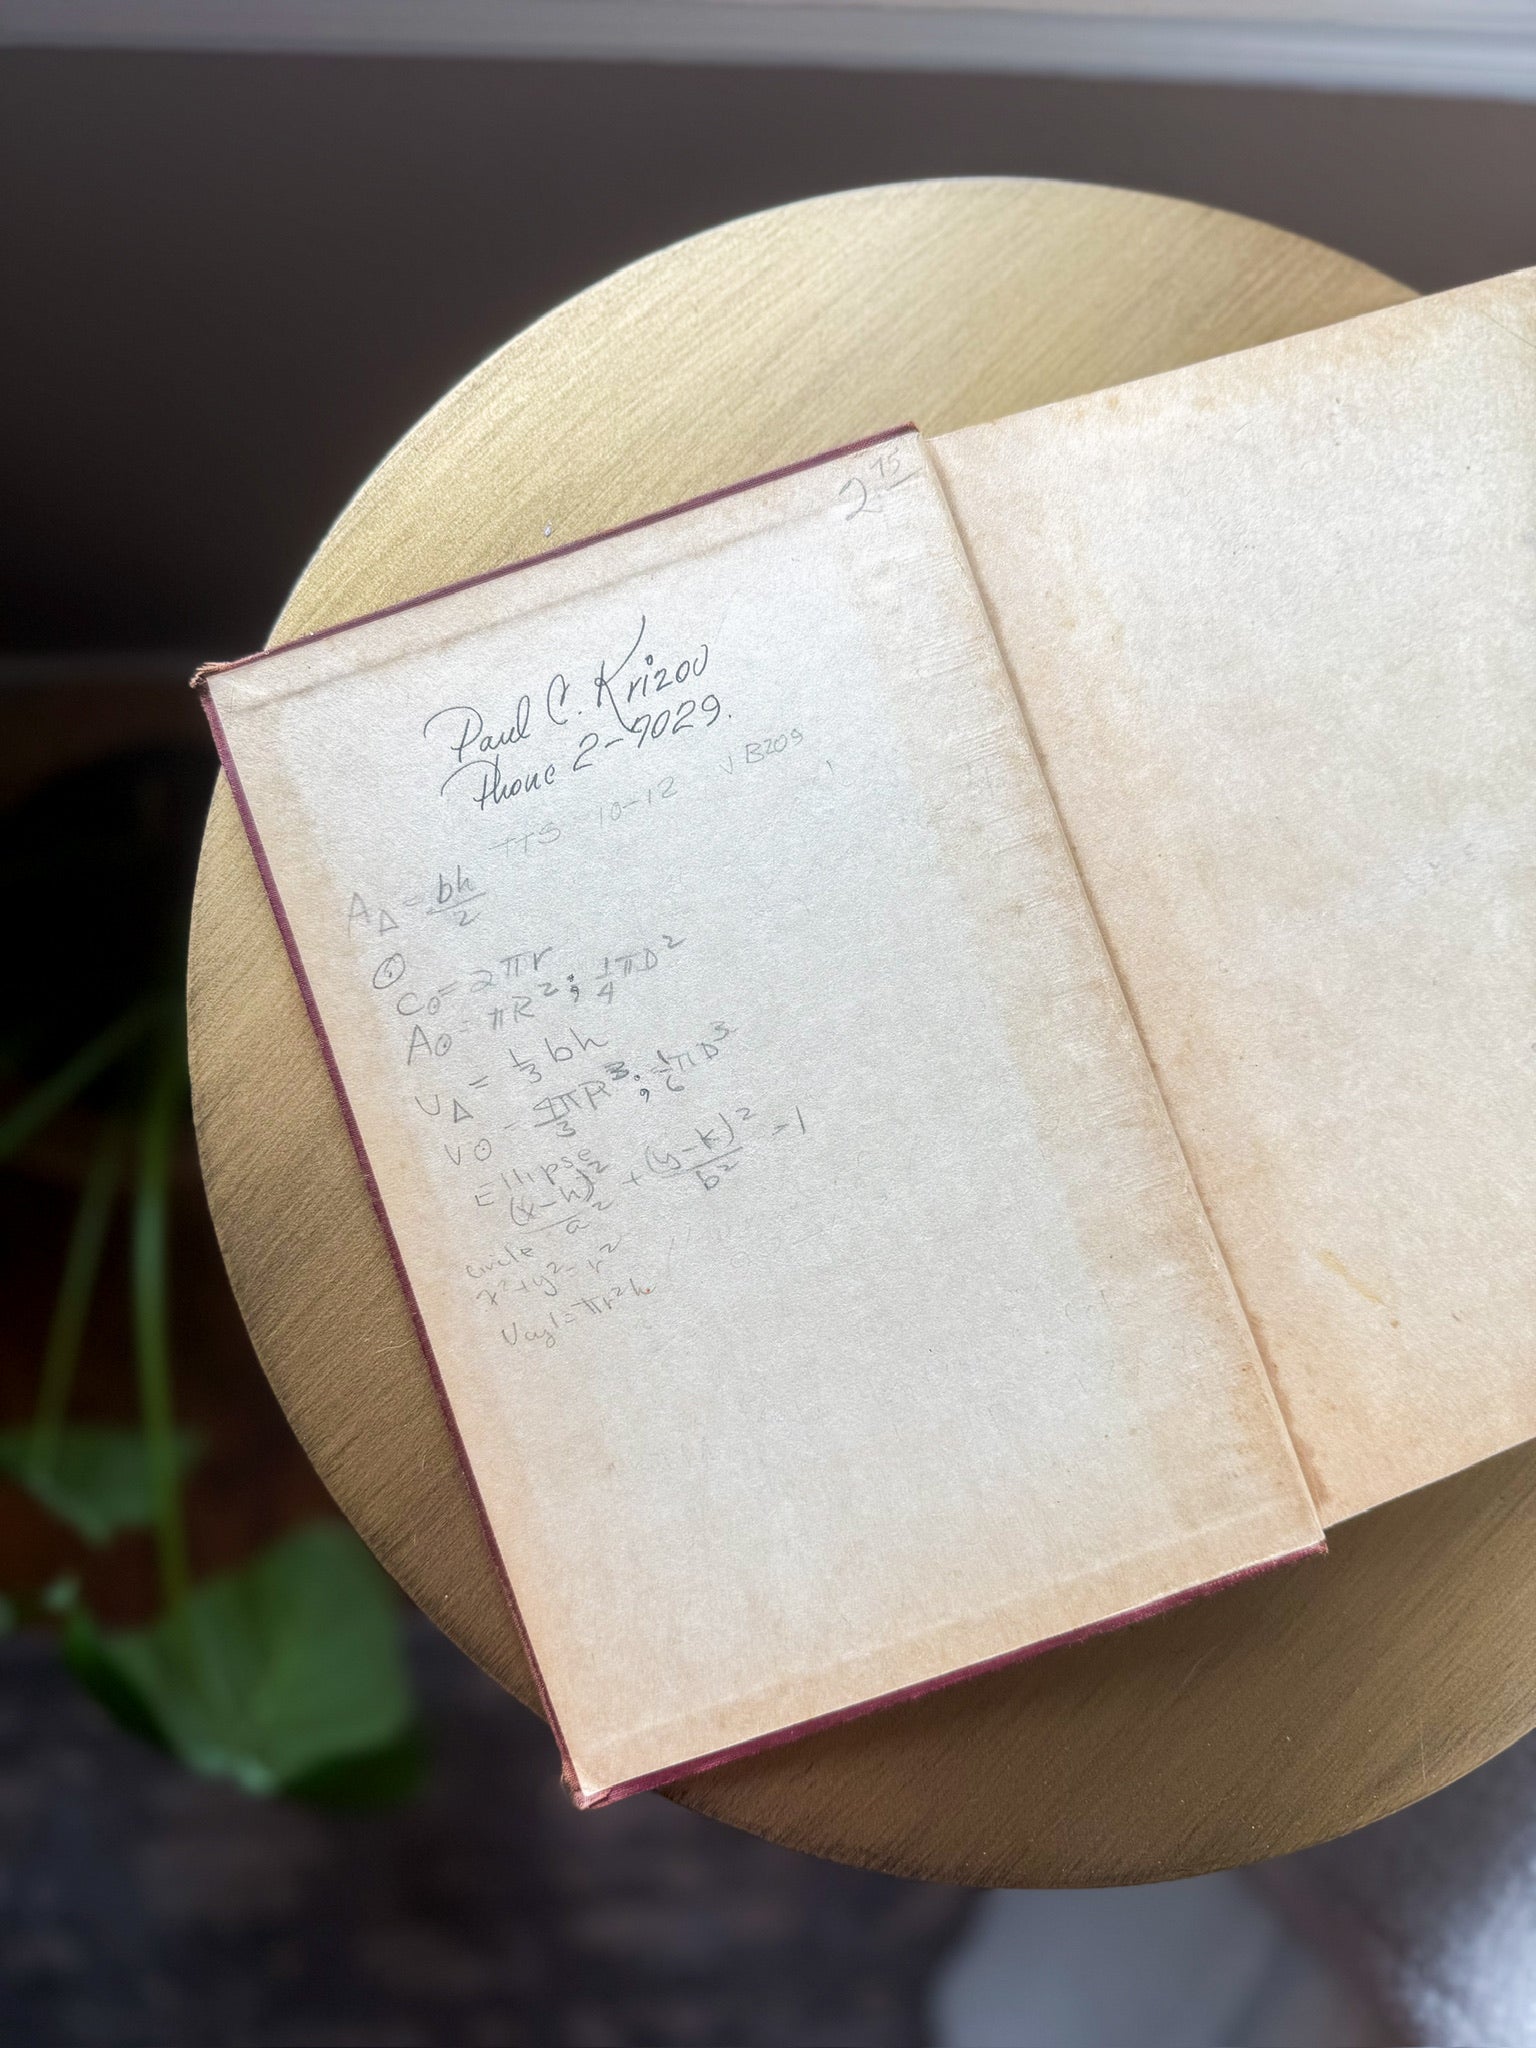 2.75
Paul C. Krizov
Phone 2-9029.
TTS 10-12 VB209
A△ = bh/2
⊙
C⊙ = 2πr
A⊙ = πR²; 1/4 πD²
V△ = 1/3 bh
V⊙ = 4πR³/3; 1/6 πD³
Ellipse
(x-h)²/a² + (y-k)²/b² = 1
circle
x²+y²=r²
Vcyl=πr²h